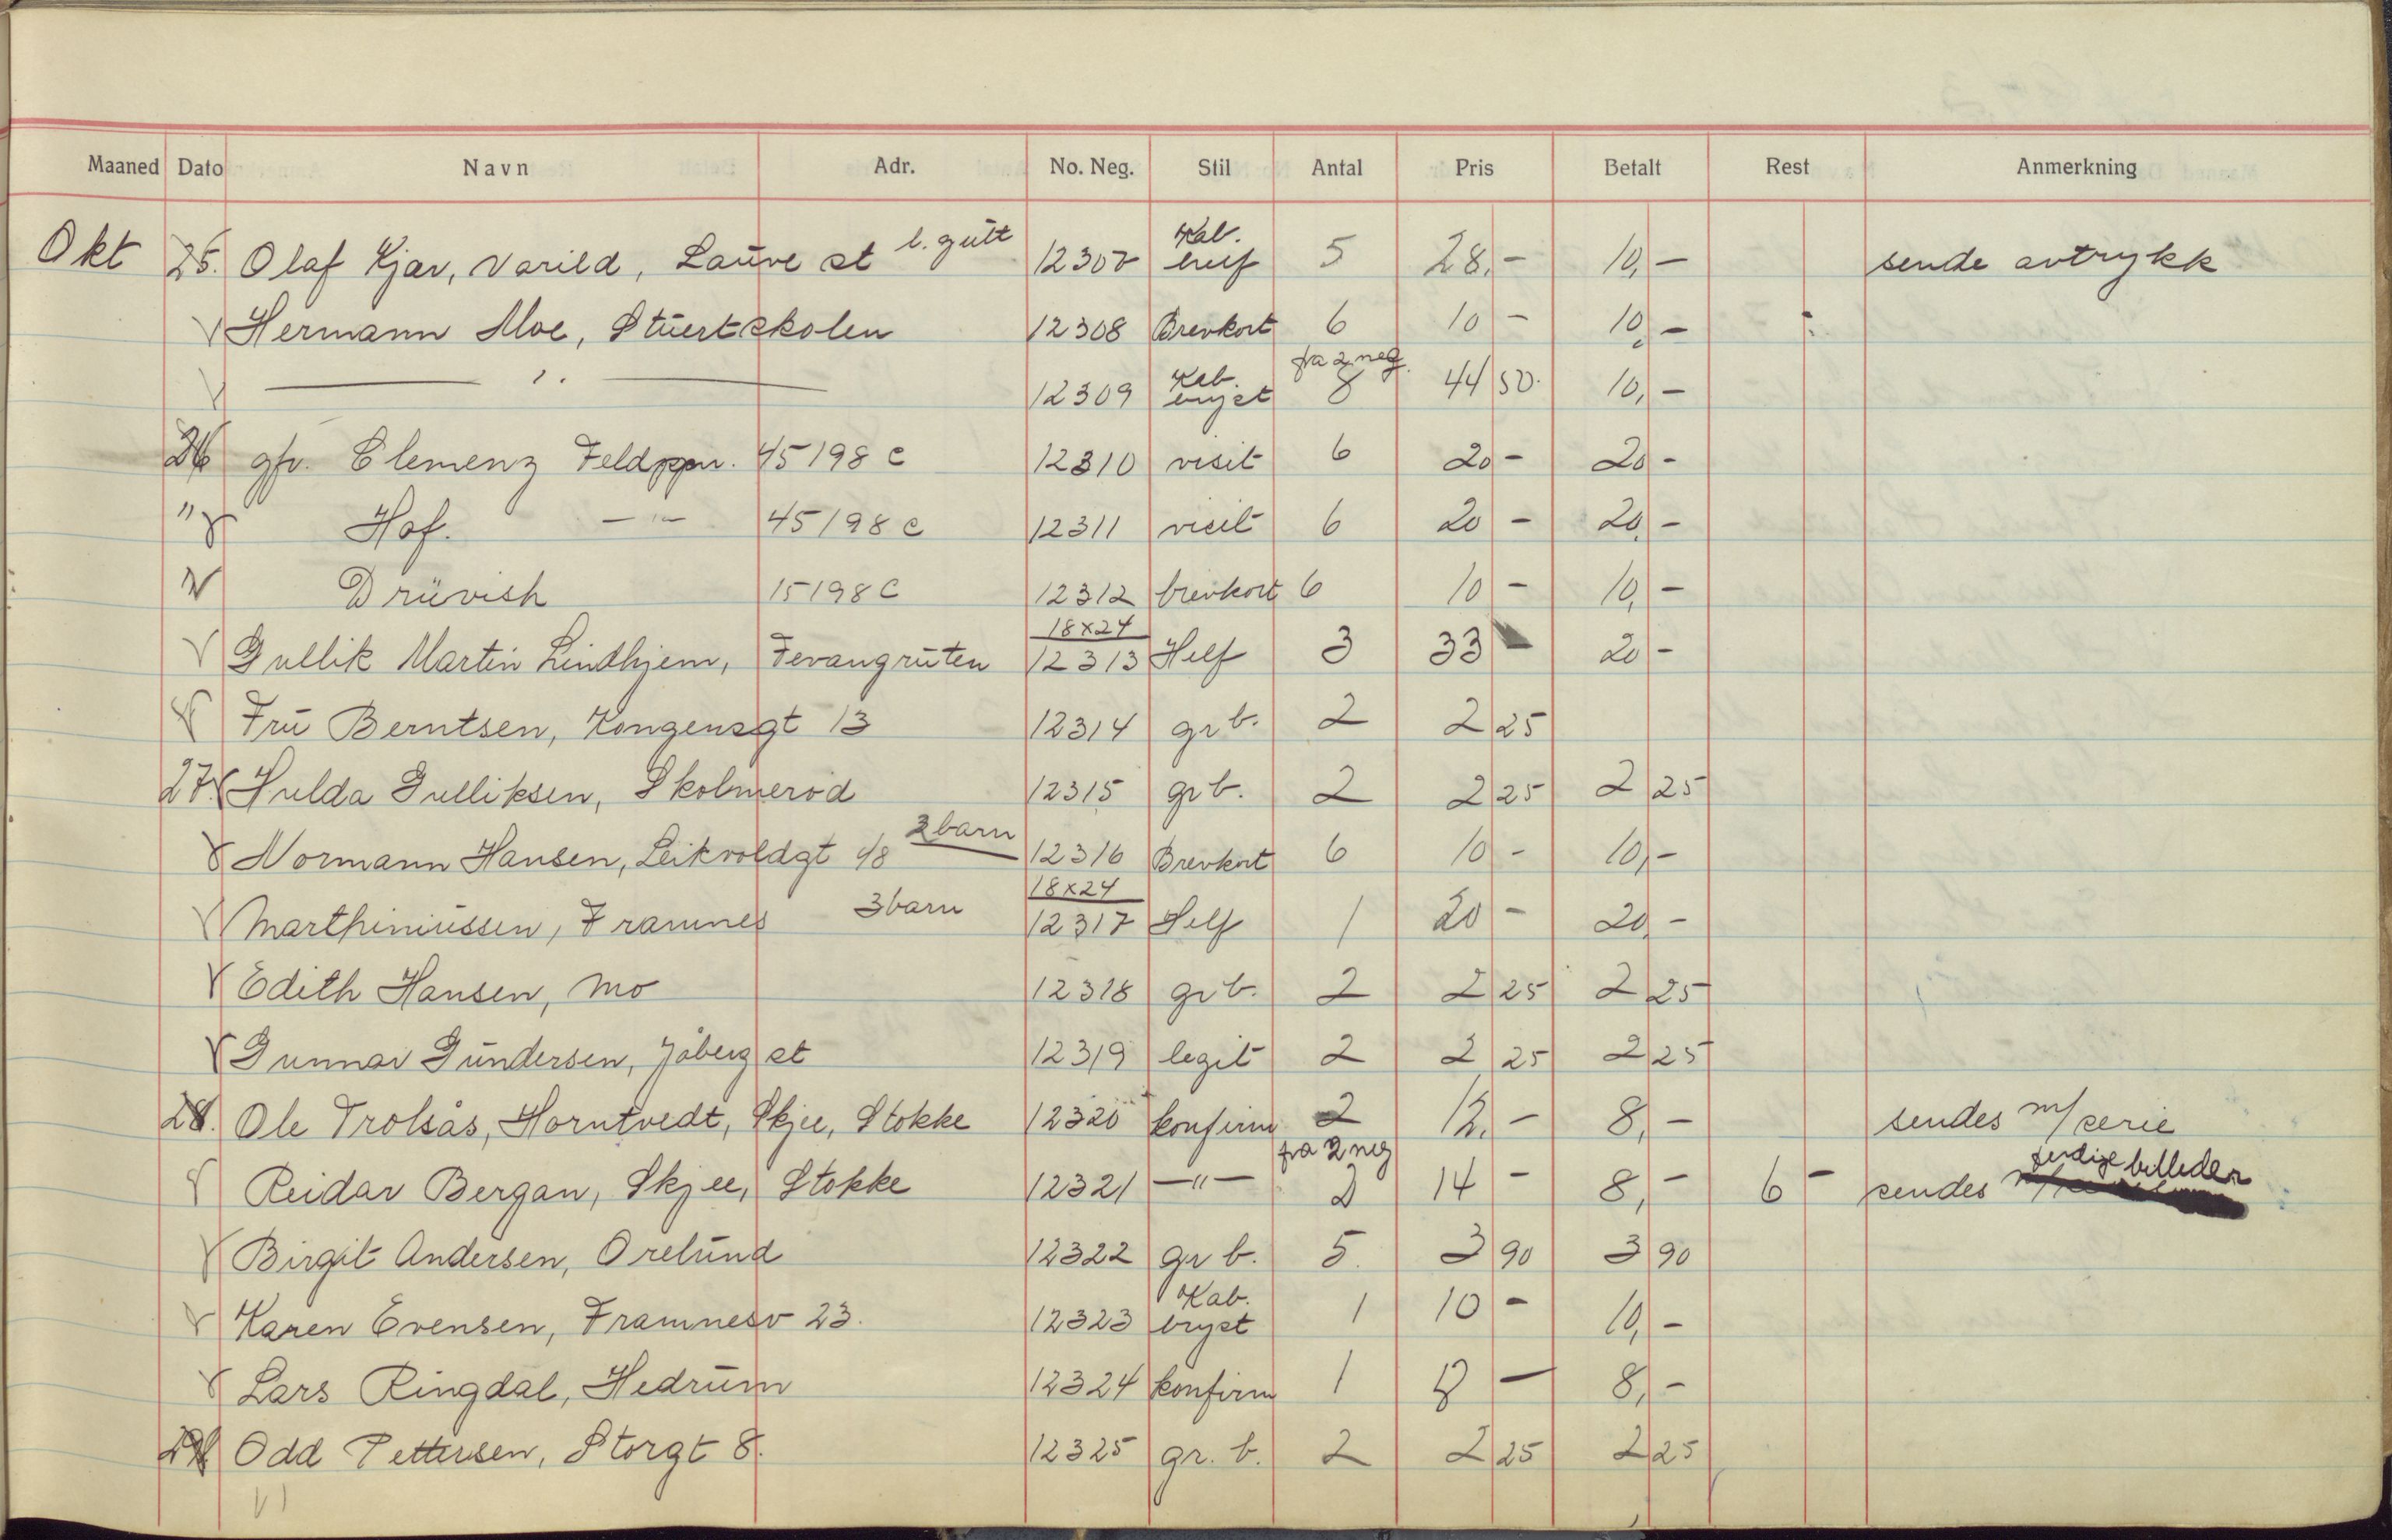 Maaned Dato Navn Adr. No. Neg. Stil Antal Pris Betalt Rest Anmerkning
Okt 25. Olaf Kjær, Varild, Lauve st l. gutt 12307 Kab. 5 28,- 10,- sende avtrykk
Hermann Moe, Stuertskolen 12308 Brevkort 6 10 - 10,-
— " — 12309 Kab. bryst fra 2 neg. 8 44 50. 10,-
26 gfr. Clemenz Feldppn. 45198 c 12310 visit 6 20 - 20 -
" Hof. — " — 45198 c 12311 visit 6 20 - 20,-
" Drüvish 15198 C 12312 brevkort 6 10 - 10,-
Gullik Martin Lindhjem, Tevangruten 18x24 12313 Helf 3 33 - 20 -
Fru Berntsen, Kongensgt 13 12314 gr b. 2 2 25
27. Hulda Gulliksen, Skolmerød 12315 gr b. 2 2 25 2 25
Normann Hansen, Leikvoldgt 48 2 barn 12316 Brevkort 6 10 - 10,-
Marthiniussen, Framnes 3 barn 18x24 12317 Helf 1 20 - 20,-
Edith Hansen, Mo 12318 gr b. 2 2 25 2 25
Gunnar Gundersen, Jåberg st 12319 legit 2 2 25 2 25
28. Ole Trolsås, Horntvedt, Skjee, Stokke 12320 konfirm 2 12,- 8,- sendes m/serie
Reidar Bergan, Skjee, Stokke 12321 — " — fra 2 neg 2 14 - 8,- 6 - sendes ferdige billeder
Birgit Andersen, Orelund 12322 gr b. 5. 3 90 3 90
Karen Evensen, Framnesv 23. 12323 Kab. bryst 1 10 - 10,-
Lars Ringdal, Hedrum 12324 konfirm 1 8 - 8,-
29 Odd Pettersen, Storgt 8. 12325 gr. b. 2 2 25 2 25